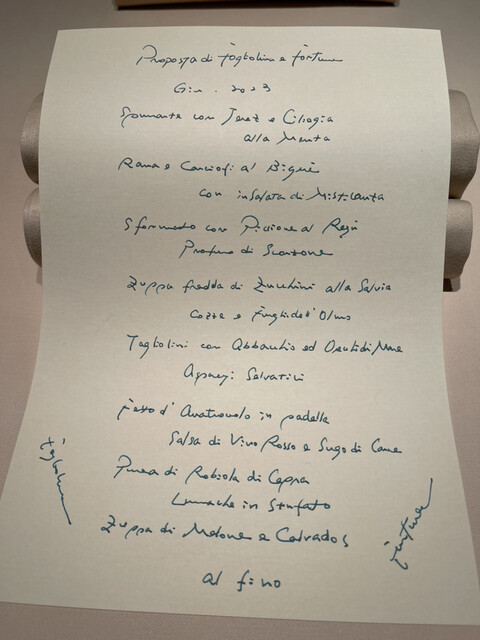 Proposta di fagolino e fortuna
Giu. 2023
Spumante con Jerez e Ciliegia
alla Menta
Rana e Carciofi al Bignè
con insalata di Misticanta
Sformato con Piccione al Regù
Profumo di Scorzone
Zuppa fredda di Zucchini alla Salvia
Cozze e Funghi dell'Olmo
Tagliolini con Abbacchio ed Orecchi di Mare
Asparagi Selvatici
d'Anatrouolo in padella
Salsa di Vino Rosso e Sugo di Carne
Purea di Robiola di Capra
Lumache in Stufato
Zuppa di Melone e Calvados
al fino
fortuna